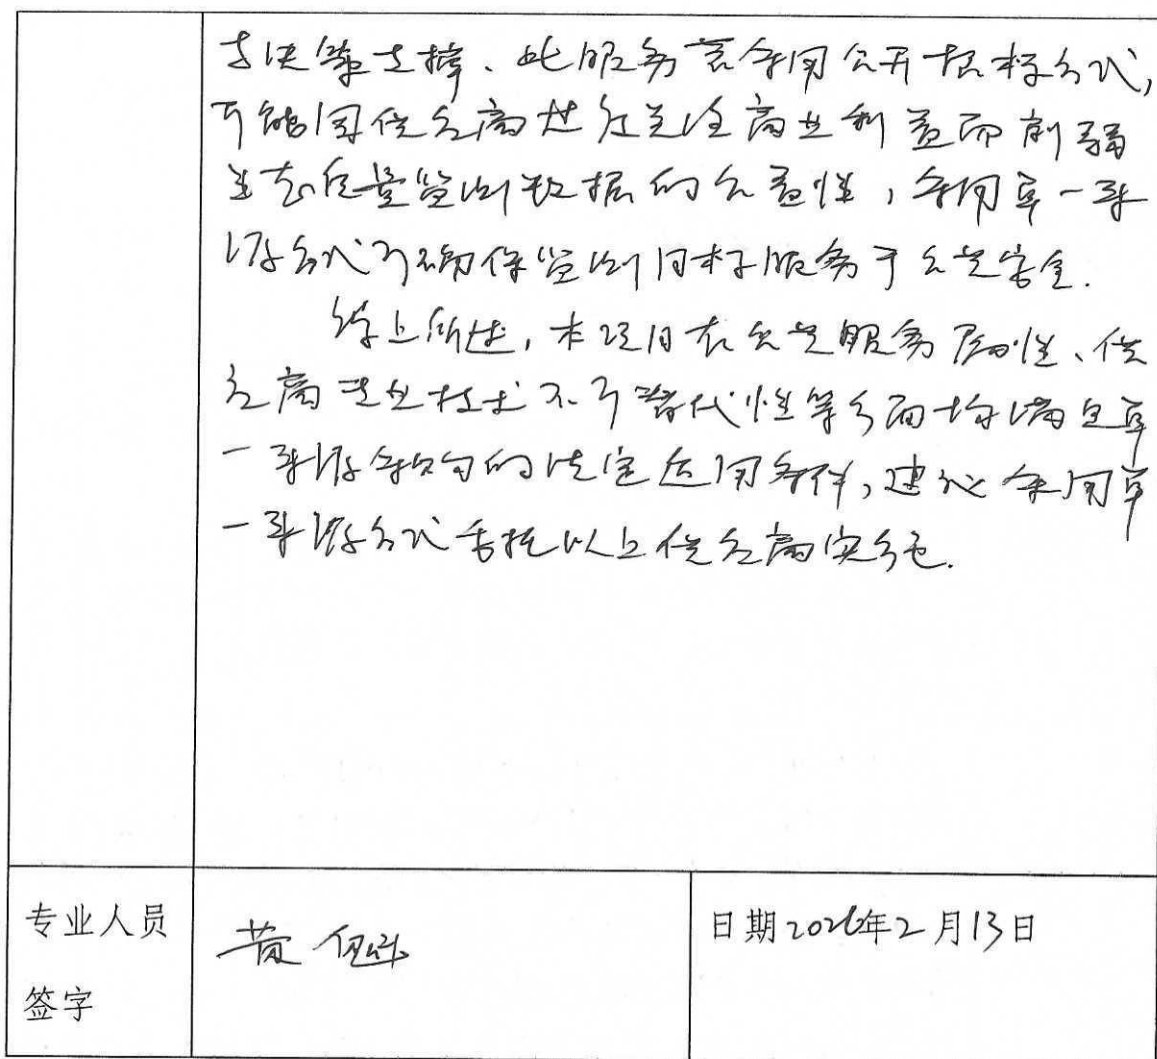 决策支撑、此服务若采用公开招标方式,
可能因供应商过度关注商业利益而削弱
生态质量监测数据的公益性,采用单一来
源方式可确保监测目标服务于公共安全.
综上所述,本项目在公共服务属性、供
应商专业技术不可替代性等方面均满足单
一来源采购的法定适用条件,建议采用单
一来源方式委托以上供应商实施.
专业人员
签字
黄
日期2026年2月13日